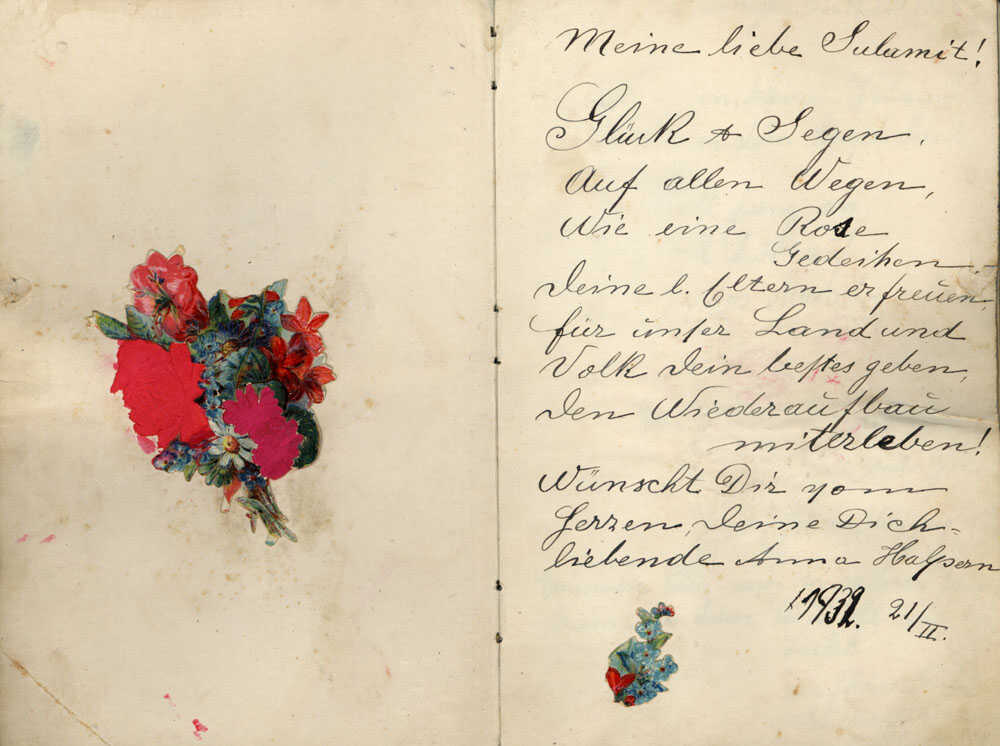 Meine liebe Sulamit!
Glück & Segen,
Auf allen Wegen,
Wie eine Rose
Gedeihen.
Deine l. Eltern erfreuen,
für unser Land und
Volk Dein bestes geben,
den Wiederaufbau
miterleben!
Wünscht Dir vom
Herzen, Deine Dich-
liebende Anna Halpern
1932. 21/II.